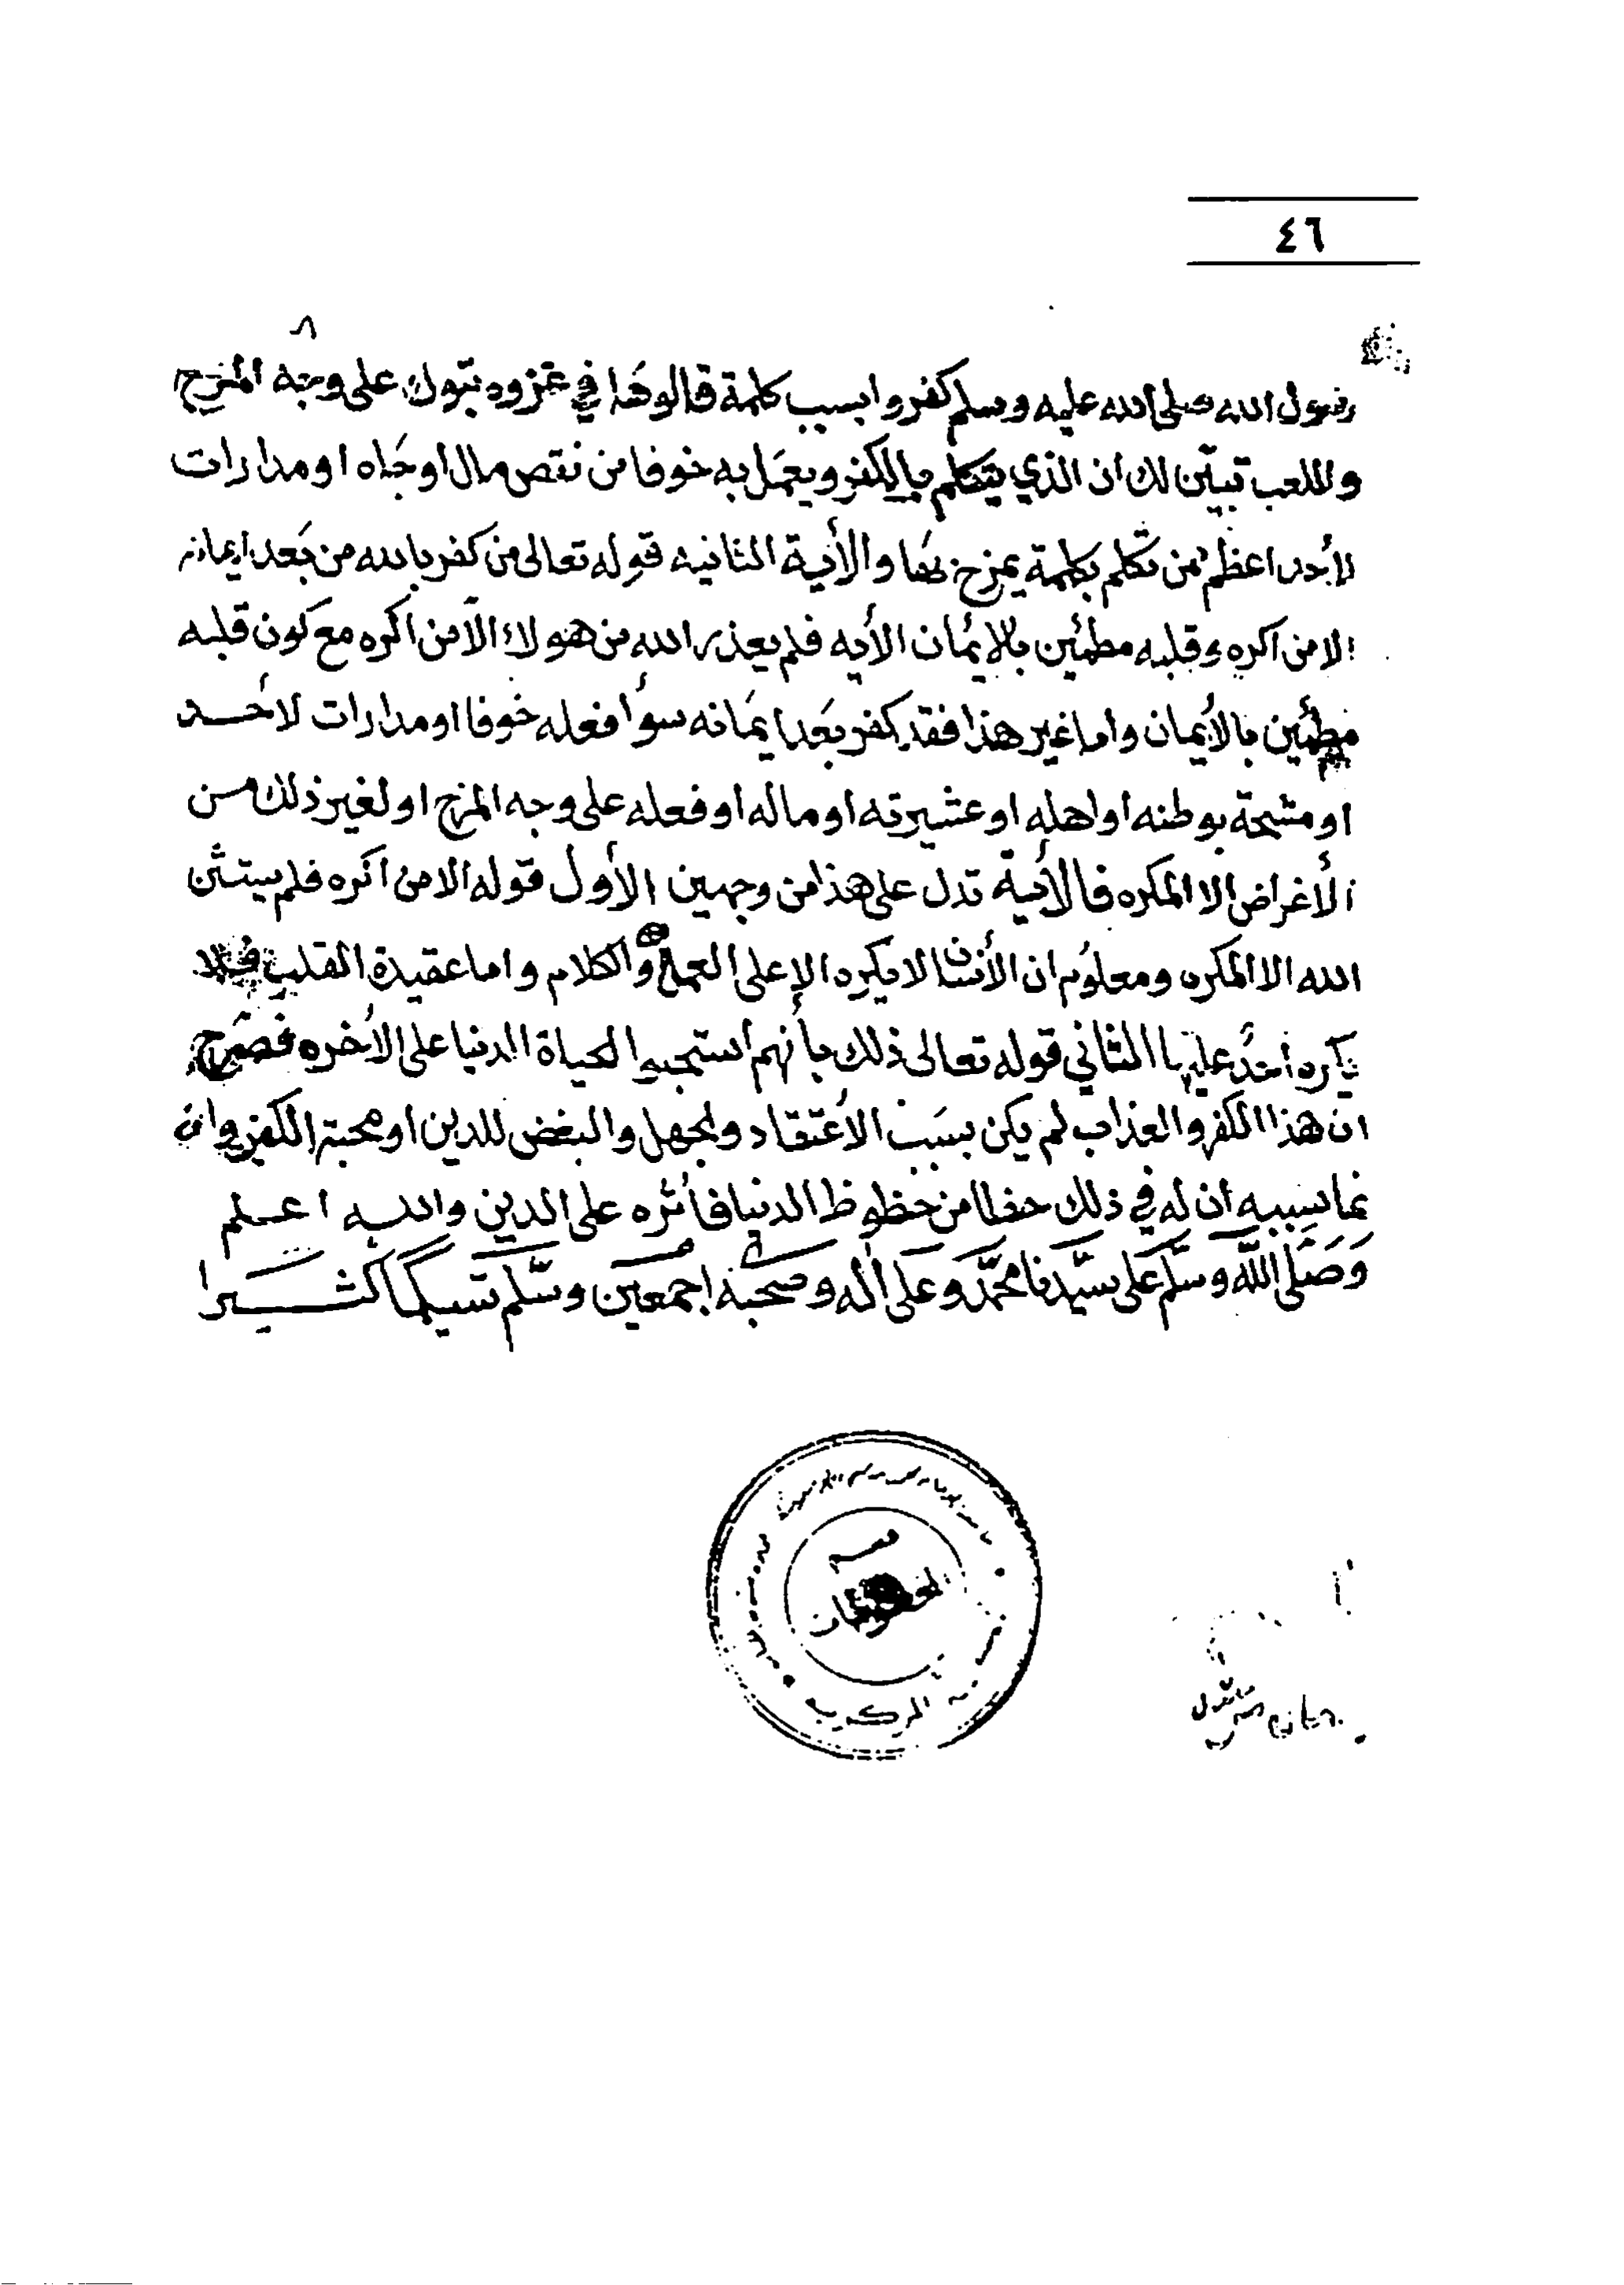 ٤٦
٨
رسول الله صلى الله عليه وسلم كفروا بسبب كلمة قالوها في غزوه تبوك على وجه المزح
واللعب تبيّن لك ان الذي يتكلم بالكفر ويعمل به خوفا من نقص مال او جاه او مدارات
لأحد اعظم ممن تكلم بكلمة يمزح بها والأية الثانيه قوله تعالى من كفر بالله من بعد ايمانه
الا من اكره وقلبه مطمئين بالإيمان الأيه فلم يعذر الله من هولاء الا من اكره مع كون قلبه
مطمئين بالأيمان واما غير هذا فقد كفر بعد ايمانه سوأ فعله خوفا او مدارات لأحد
او مشحة بوطنه او اهله او عشيرته او ماله او فعله على وجه المزح او لغير ذلك من
الأغراض الا المكره فالأية تدل على هذا من وجهين الأول قوله الا من اكره فلم يستثن
الله الا المكره ومعلوم ان الأنسان لا يكره الا على العمل والكلام واما عقيدة القلب فلا
يكره أحد عليها الثاني قوله تعالى ذلك بأنهم استحبوا الحياة الدنيا على الأخره فصرح
ان هذا الكفر والعذاب لم يكن بسبب الأعتقاد ولجهل والبغض للدين او محبة الكفر وان
نما سببه ان له في ذلك حظا من حظوظ الدنيا فأثره على الدين والله اعلم
وصلى الله وسلم على سيدنا محمد وعلى أله وصحبه اجمعين وسلم تسيلما كثيرا
قسم
المخطوطات